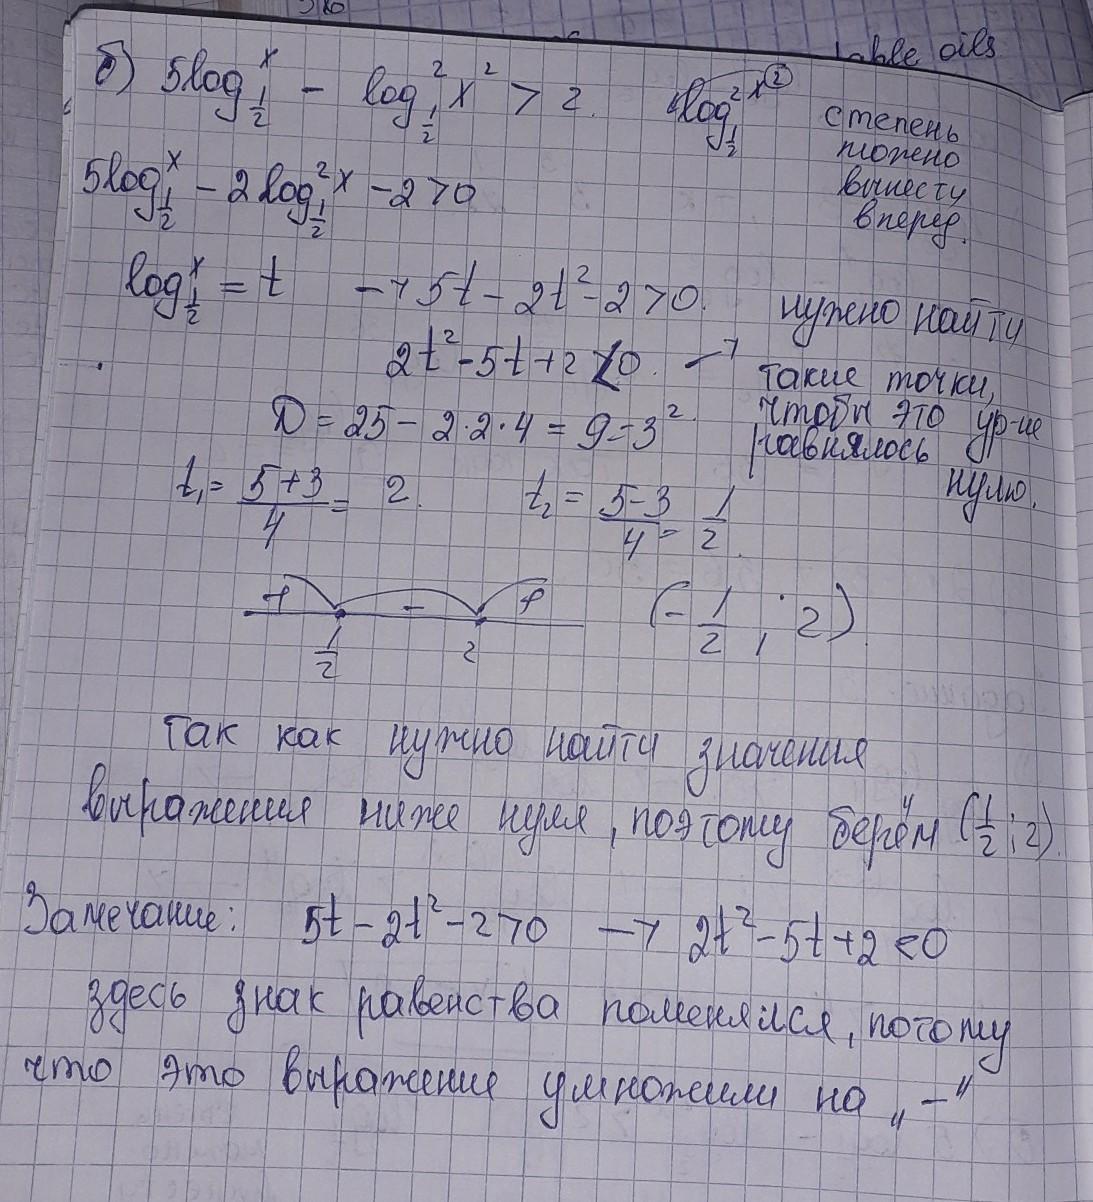 able oils
б) 5log_{1/2}^x - log²_{1/2} x² > 2. log²_{1/2} x²
степень
можно
вынести
вперед.
5log_{1/2}^x - 2log²_{1/2} x - 2 > 0
log_{1/2}^x = t → 5t - 2t² - 2 > 0.
2t² - 5t + 2 < 0. →
нужно найти
такие точки,
чтобы это ур-ие
равнялось
нулю.
D = 25 - 2·2·4 = 9 = 3².
t₁ = (5+3)/4 = 2. t₂ = (5-3)/4 = 1/2.
+ - +
1/2 2
(-1/2 ; 2)
Так как нужно найти значения
выражения ниже нуля, поэтому берём (1/2 ; 2).
Замечание: 5t - 2t² - 2 > 0 → 2t² - 5t + 2 < 0
здесь знак равенства поменялся, потому
что это выражение умножили на „-"